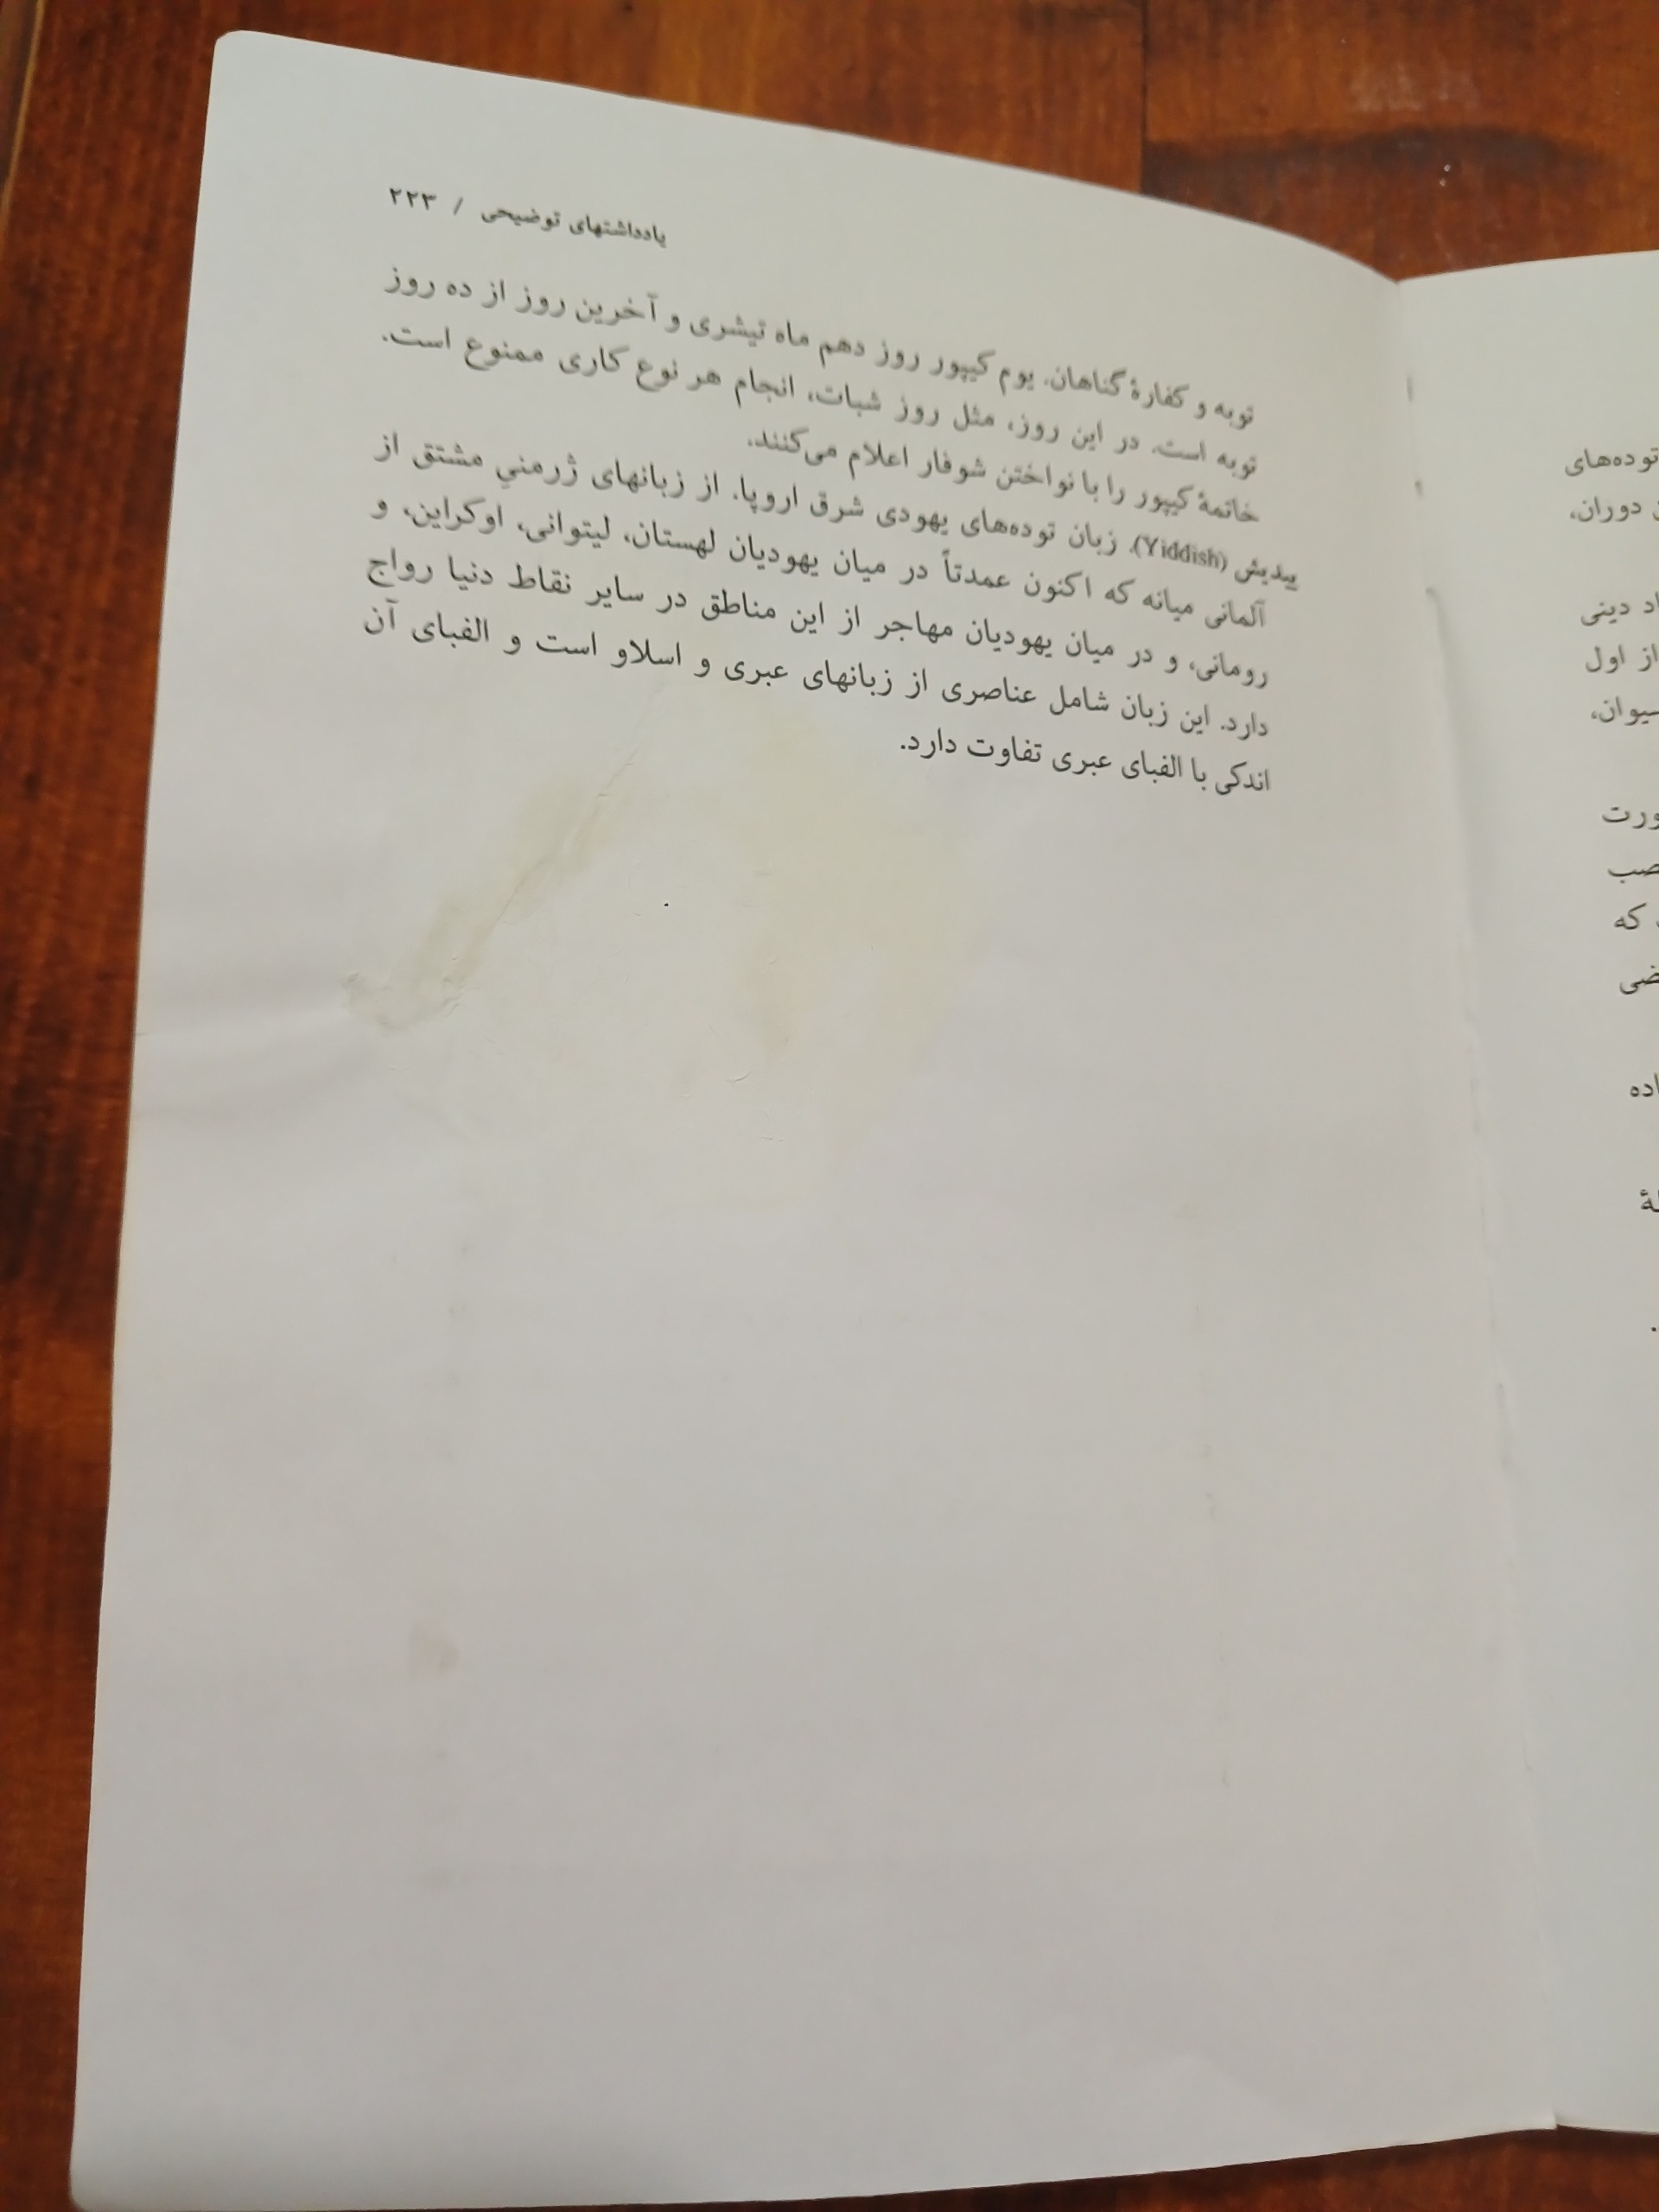 یادداشتهای توضیحی / ۲۲۳
توبه و کفارهٔ گناهان. یوم کیپور روز دهم ماه تیشری و آخرین روز از ده روز
توبه است. در این روز، مثل روز شبات، انجام هر نوع کاری ممنوع است.
خاتمهٔ کیپور را با نواختن شوفار اعلام می‌کنند.
ییدیش (Yiddish). زبان توده‌های یهودی شرق اروپا. از زبانهای ژرمنیِ مشتق از
آلمانی میانه که اکنون عمدتاً در میان یهودیان لهستان، لیتوانی، اوکراین، و
رومانی، و در میان یهودیان مهاجر از این مناطق در سایر نقاط دنیا رواج
دارد. این زبان شامل عناصری از زبانهای عبری و اسلاو است و الفبای آن
اندکی با الفبای عبری تفاوت دارد.
توده‌های
دوران،
دینی
از اول
سیوان،
که